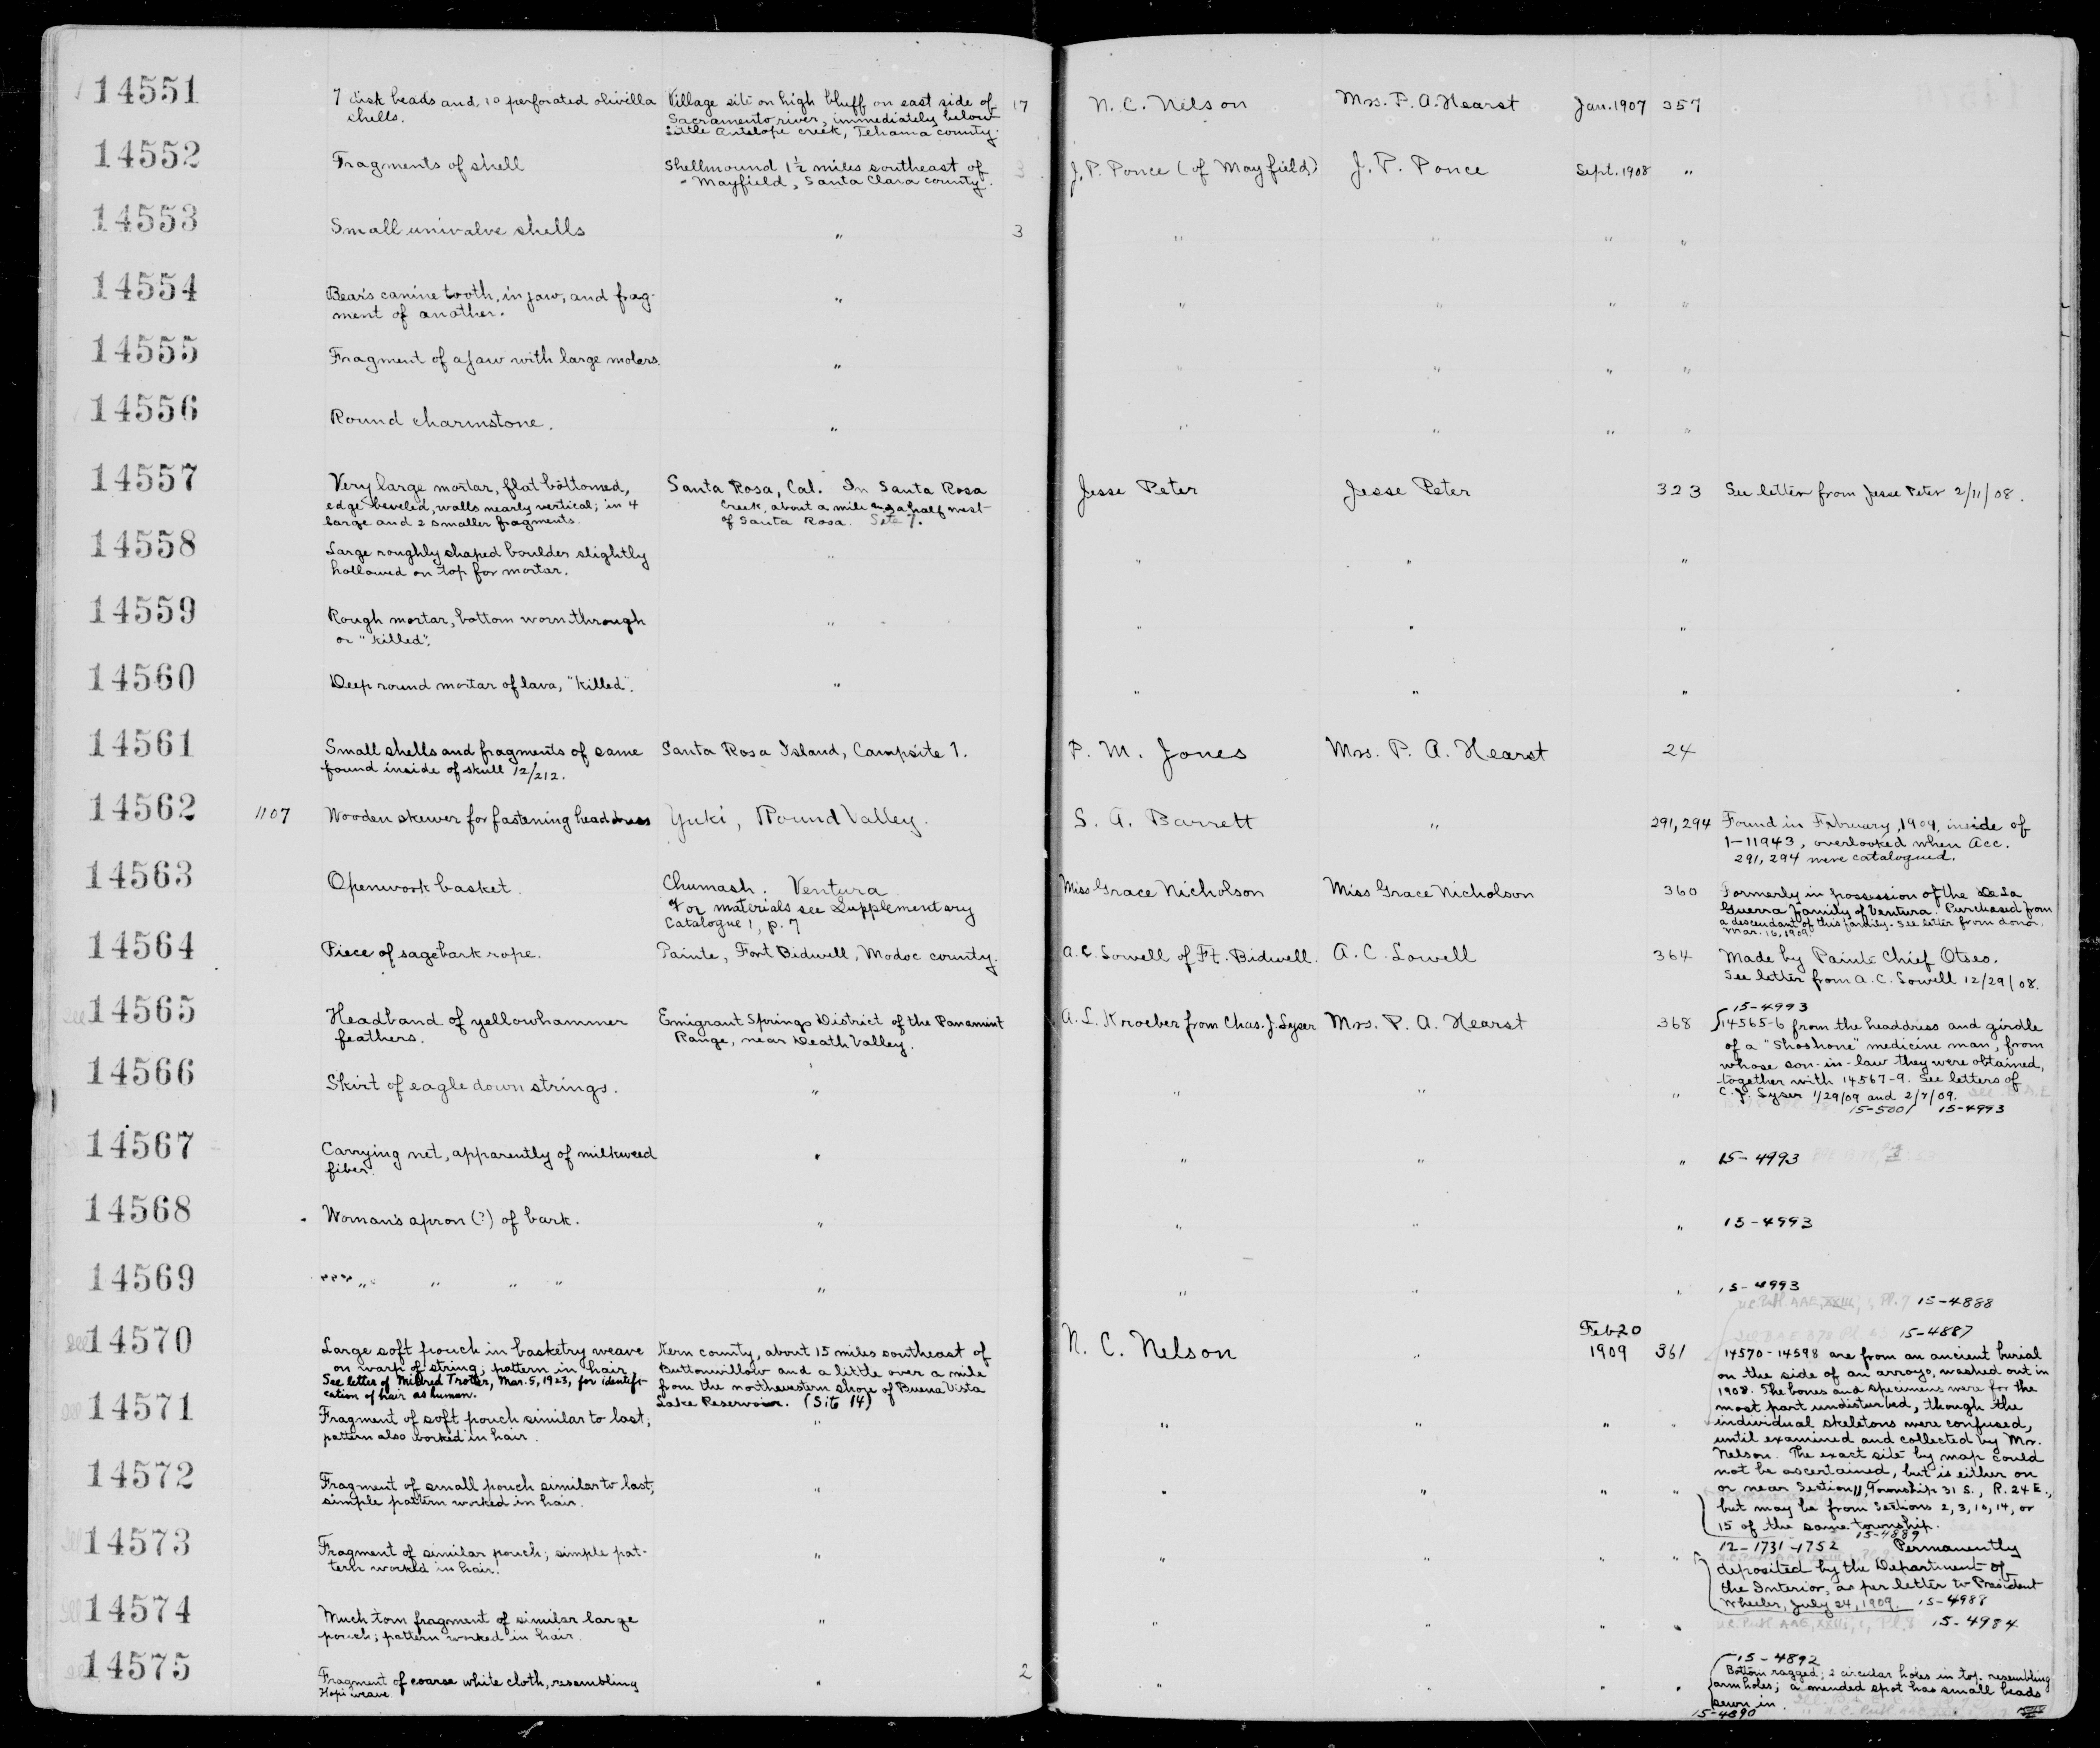 14551 7 disk beads and 10 perforated olivilla Village site on high bluff on east side of 17 N. C. Nelson Mrs. P. A. Hearst Jan. 1907 357
shells. Sacramento river, immediately below
Little Antelope creek, Tehama county.
14552 Fragments of shell Shellmound 1½ miles southeast of 3 J. P. Ponce (of Mayfield) J. P. Ponce Sept. 1908 "
Mayfield, Santa Clara county.
14553 Small univalve shells " 3 " " " "
14554 Bear's canine tooth, in jaw, and frag- " " " " "
ment of another.
14555 Fragment of a jaw with large molars. " " " " "
14556 Round charmstone. " " " " "
14557 Very large mortar, flat bottomed, Santa Rosa, Cal. In Santa Rosa Jesse Peter Jesse Peter 323 See letter from Jesse Peter 2/11/08.
edge beveled, walls nearly vertical; in 4 Creek, about a mile and a half west
large and 2 smaller fragments. of Santa Rosa. Site 7.
14558 Large roughly shaped boulder slightly " " " "
hollowed on top for mortar.
14559 Rough mortar, bottom worn through " " " "
or "killed".
14560 Deep round mortar of lava, "killed". " " " "
14561 Small shells and fragments of same Santa Rosa Island, Campsite 1. P. M. Jones Mrs. P. A. Hearst 24
found inside of skull 12/212.
14562 1107 Wooden skewer for fastening headdress Yuki, Round Valley. S. A. Barrett " 291, 294 Found in February, 1909, inside of
1-11943, overlooked when Acc.
291, 294 were catalogued.
14563 Openwork basket. Chumash. Ventura Miss Grace Nicholson Miss Grace Nicholson 360 Formerly in possession of the De La
For materials see Supplementary Guerra family of Ventura. Purchased from
Catalogue 1, p. 7 a descendant of this family. See letter from donor,
Mar. 16, 1909.
14564 Piece of sagebark rope. Paiute, Fort Bidwell, Modoc county. A. C. Lowell of Ft. Bidwell. A. C. Lowell 364 Made by Paiute Chief Otseo.
See letter from A. C. Lowell 12/29/08.
15-4993
14565 Headband of yellowhammer Emigrant Springs District of the Panamint A. L. Kroeber from Chas. J. Lyser Mrs. P. A. Hearst 368 14565-6 from the headdress and girdle
feathers. Range, near Death Valley. of a "Shoshone" medicine man, from
whose son-in-law they were obtained,
14566 Skirt of eagle down strings. " " " " together with 14567-9. See letters of
C. J. Lyser 1/29/09 and 2/7/09.
15-5001 15-4993
14567 Carrying net, apparently of milkweed " " " " 15-4993
fiber.
14568 Woman's apron (?) of bark. " " " " 15-4993
14569 " " " " " " " " 15-4993
15-4888
15-4887
14570 Large soft pouch in basketry weave Kern county, about 15 miles southeast of N. C. Nelson " Feb 20 1909 361 14570-14598 are from an ancient burial
on warp of string; pattern in hair Buttonwillow and a little over a mile on the side of an arroyo, washed out in
See letter of Mildred Trotter, Mar. 5, 1923, for identifi- from the northwestern shore of Buena Vista 1908. The bones and specimens were for the
cation of hair as human. Lake Reservoir. (Site 14) most part undisturbed, though the
14571 Fragment of soft pouch similar to last; " " " " " individual skeletons were confused,
pattern also worked in hair. until examined and collected by Mr.
Nelson. The exact site by map could
14572 Fragment of small pouch similar to last; " " " " " not be ascertained, but is either on
simple pattern worked in hair. or near Section 11, Township 31 S., R. 24 E.,
but may be from Sections 2, 3, 10, 14, or
15 of the same township.
15-4889
14573 Fragment of similar pouch; simple pat- " " " " " 12-1731-1752 Permanently
tern worked in hair. deposited by the Department of
the Interior, as per letter to President
14574 Much torn fragment of similar large " " " " " Wheeler, July 24, 1909. 15-4988
pouch; pattern worked in hair. 15-4984
15-4892
14575 Fragment of coarse white cloth, resembling " 2 " " " " Bottom ragged; 2 circular holes in top resembling
Hopi weave armholes; a mended spot has small beads
sewn in.
15-4890